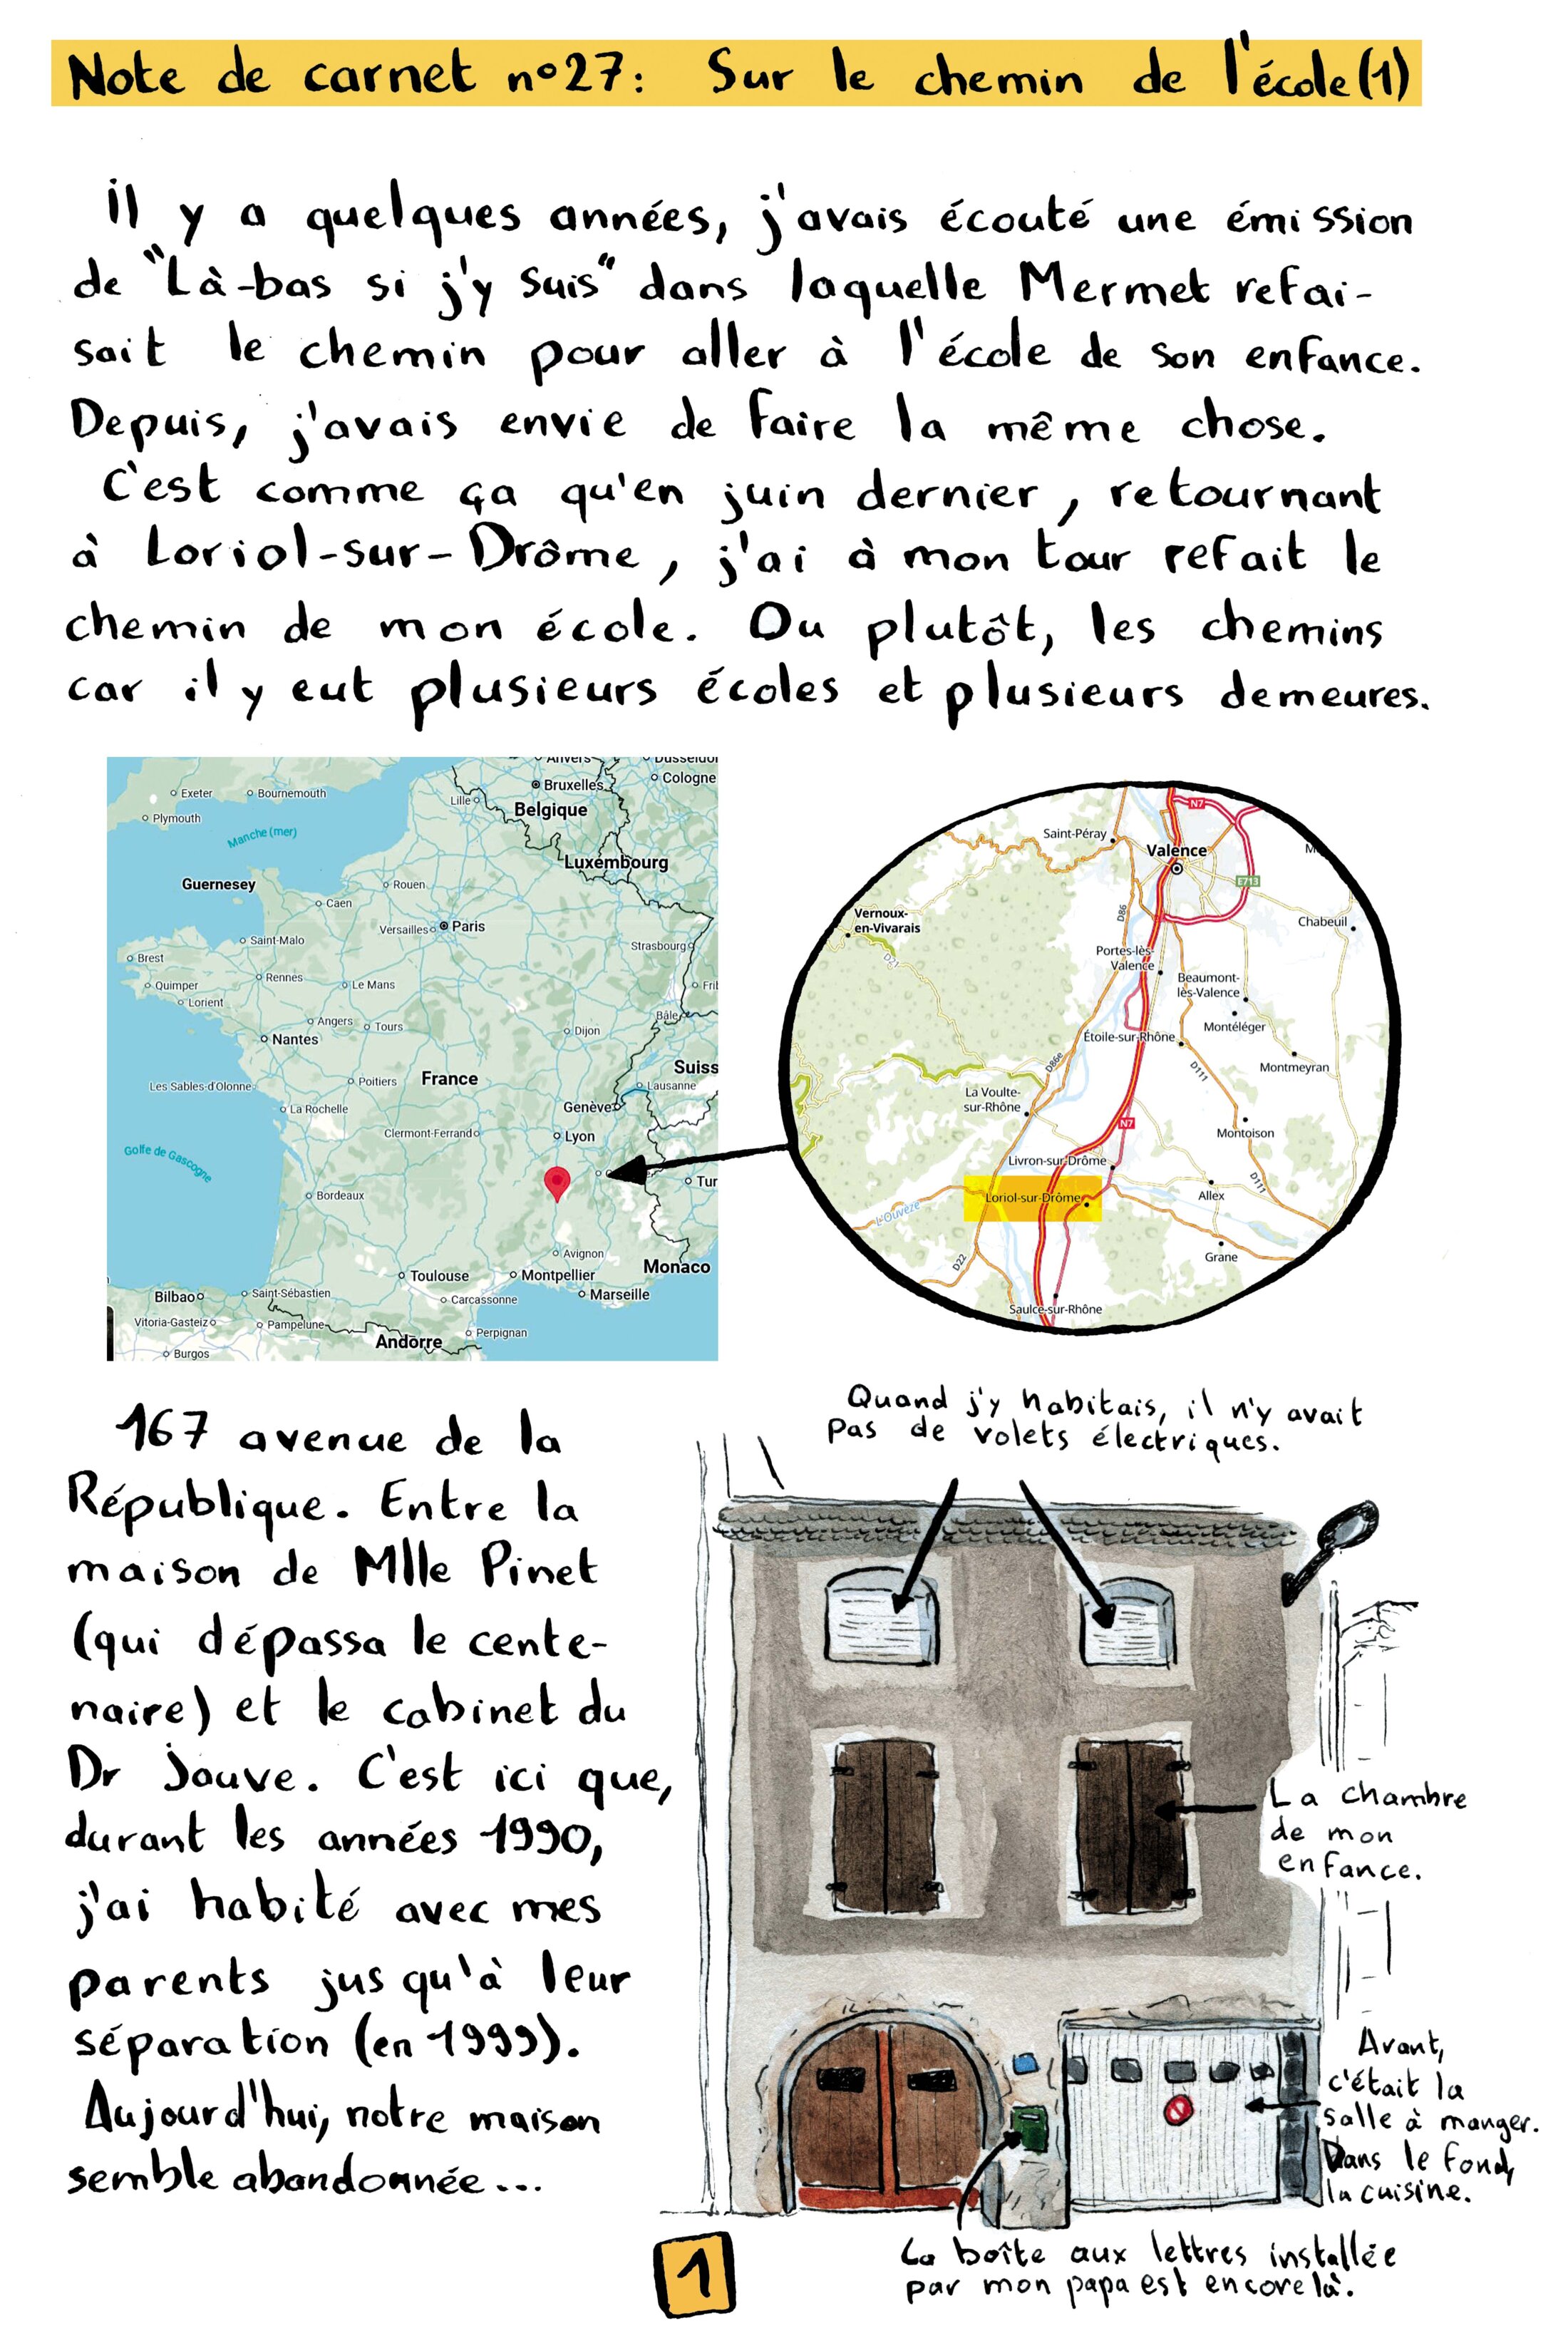 Note de carnet n°27: Sur le chemin de l'école(1)
il y a quelques années, j'avais écouté une émission
de "Là-bas si j'y suis" dans laquelle Mermet refai-
sait le chemin pour aller à l'école de son enfance.
Depuis, j'avais envie de faire la même chose.
C'est comme ça qu'en juin dernier, retournant
à Loriol-sur-Drôme, j'ai à mon tour refait le
chemin de mon école. Ou plutôt, les chemins
car il y eut plusieurs écoles et plusieurs demeures.
Anvers
Düsseldorf
Bruxelles
Cologne
Exeter
Bournemouth
Lille
Belgique
Plymouth
Manche (mer)
Luxembourg
Guernesey
Rouen
Caen
Versailles
Paris
Saint-Malo
Strasbourg
Brest
Rennes
Le Mans
Quimper
Frib
Lorient
Angers
Tours
Bâle
Nantes
Dijon
Les Sables-d'Olonne
Poitiers
France
Suiss
Lausanne
La Rochelle
Genève
Clermont-Ferrand
Lyon
Golfe de Gascogne
Tur
Bordeaux
Avignon
Monaco
Toulouse
Montpellier
Bilbao
Saint-Sébastien
Carcassonne
Marseille
Vitoria-Gasteiz
Pampelune
Andorre
Perpignan
Burgos
N7
Saint-Péray
Valence
M
E713
Vernoux-
en-Vivarais
D86
Chabeuil
D21
Portes-lès-
Valence
Beaumont-
lès-Valence
Montéléger
Étoile-sur-Rhône
D86e
D111
Montmeyran
La Voulte-
sur-Rhône
N7
Montoison
Livron-sur-Drôme
Loriol-sur-Drôme
Allex
D111
L'Ouvèze
D22
Grane
Saulce-sur-Rhône
167 avenue de la
République. Entre la
maison de Mlle Pinet
(qui dépassa le cente-
naire) et le cabinet du
Dr Jouve. C'est ici que,
durant les années 1990,
j'ai habité avec mes
parents jusqu'à leur
séparation (en 1999).
Aujourd'hui, notre maison
semble abandonnée...
Quand j'y habitais, il n'y avait
pas de volets électriques.
La chambre
de mon
enfance.
Avant,
c'était la
salle à manger.
Dans le fond,
la cuisine.
La boîte aux lettres installée
par mon papa est encore là.
1